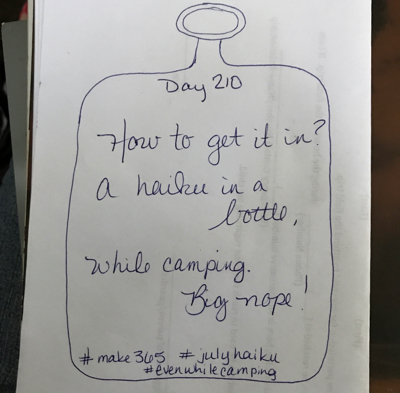 Day 210
How to get it in?
A haiku in a
bottle,
while camping.
Big nope!
#make365 #julyhaiku
#evenwhilecamping